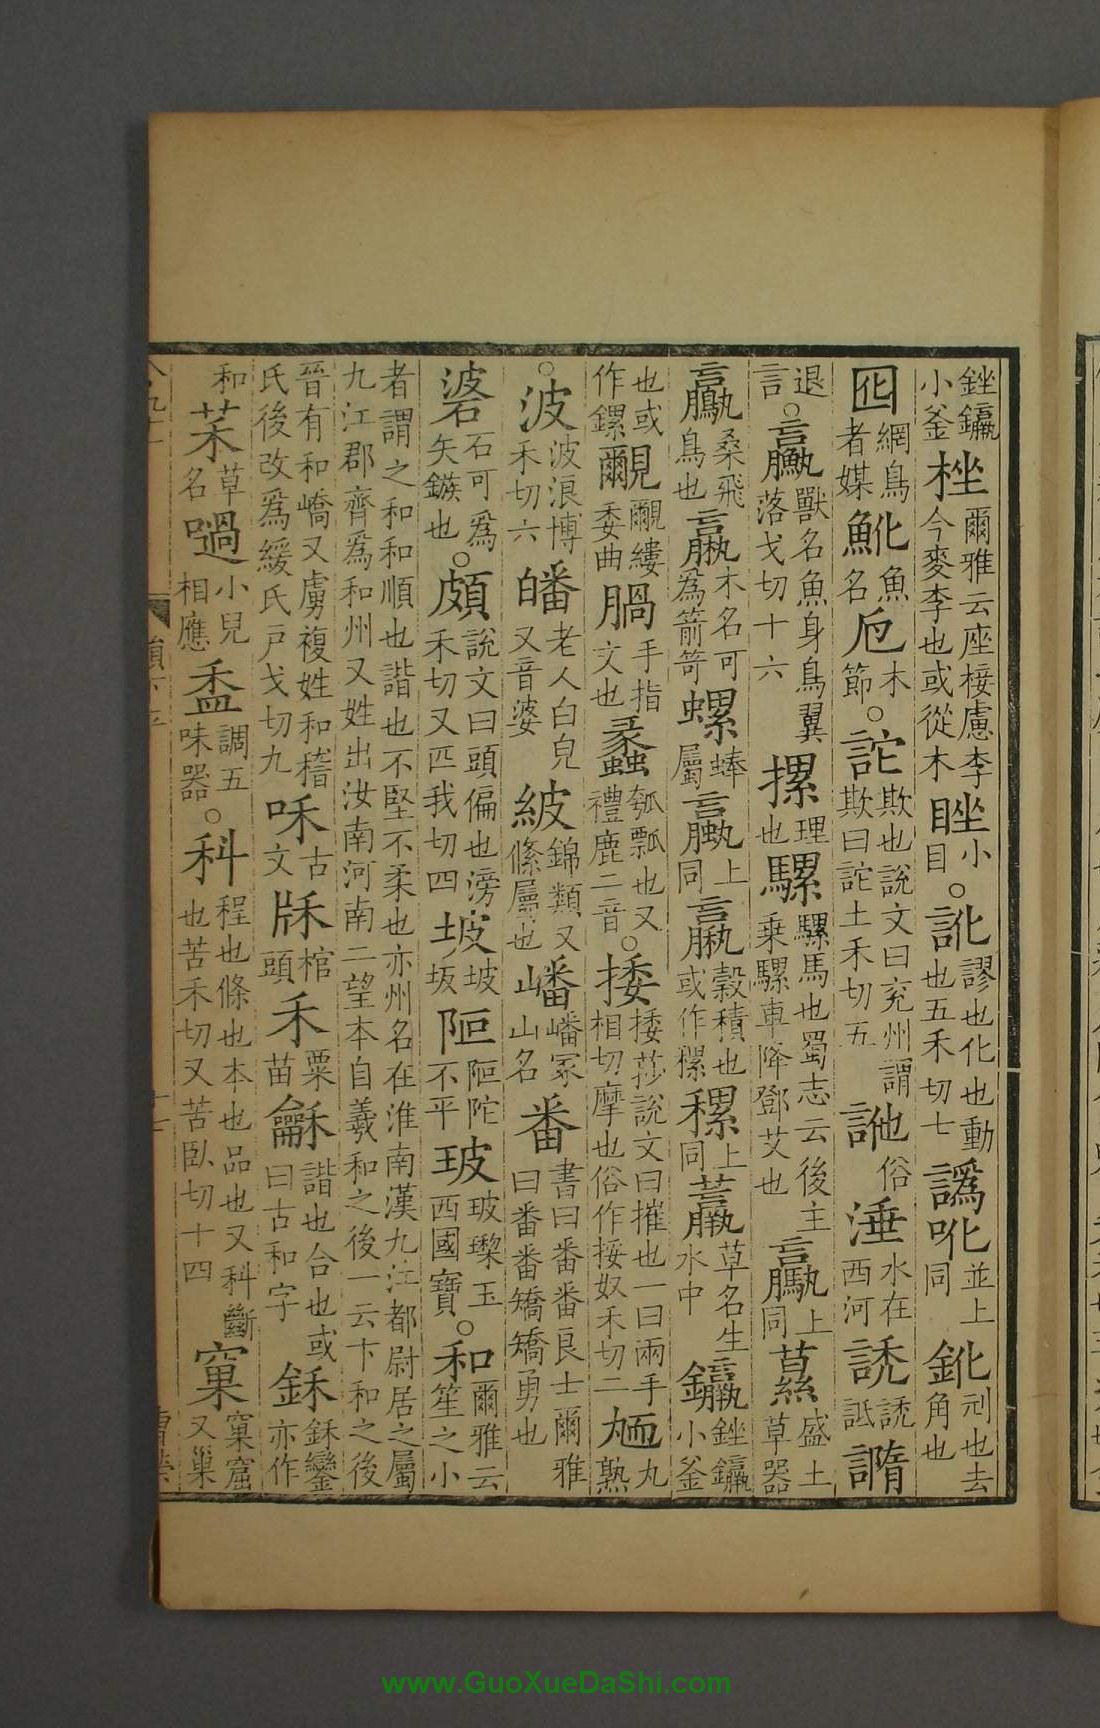 銼鑹小釜桽爾雅云座椄慮李今麥李也或從木睉小目○訛謬也化也動也五禾切七譌吪並上同鈋刓也去角也
囮網鳥者媒魤魚名厄木節○詑欺也說文曰兖州謂欺曰詑土禾切五訑俗涶水在西河誘誘詆
退言○獸名魚身鳥翼落戈切十六摞理也騾騾馬也蜀志云後主乗騾車降鄧艾也上同蔂盛土草器
桑飛鳥也木名可為箭笴螺蜯屬上同穀積也或作樏𥡜上同草名生水中銼鑹小釜
也或作鏍覶覶縷委曲腡手指文也蠡瓠瓢也又禮鹿二音○捼捼莎說文曰摧也一曰兩手相切摩也俗作挼奴禾切二丸熟
○波波浪博禾切六皤老人白皃又音婆紴錦類又絛屬也嶓嶓冢山名番書曰番番良士爾雅曰番番矯矯勇也
碆石可爲矢鏃也○頗說文曰頭偏也滂禾切又匹我切四坡坡坂岠岠陀不平玻玻瓈玉西國寶○和爾雅云笙之小
者謂之和和順也諧也不堅不柔也亦州名在淮南漢九江都尉居之屬九江郡齊爲和州又姓出汝南河南二望本自羲和之後一云卞和之後
晉有和嶠又虜複姓和稽氏後改爲緩氏戸戈切九咊古文盉棺頭禾粟苗龢諧也合也或曰古和字鉌鉌鑾亦作
和苿草名㗻小兒相應盉調五味器○科程也條也本也品也又科斷也苦禾切又苦臥切十四窠窠窟又巢
www.GuoXueDaShi.com